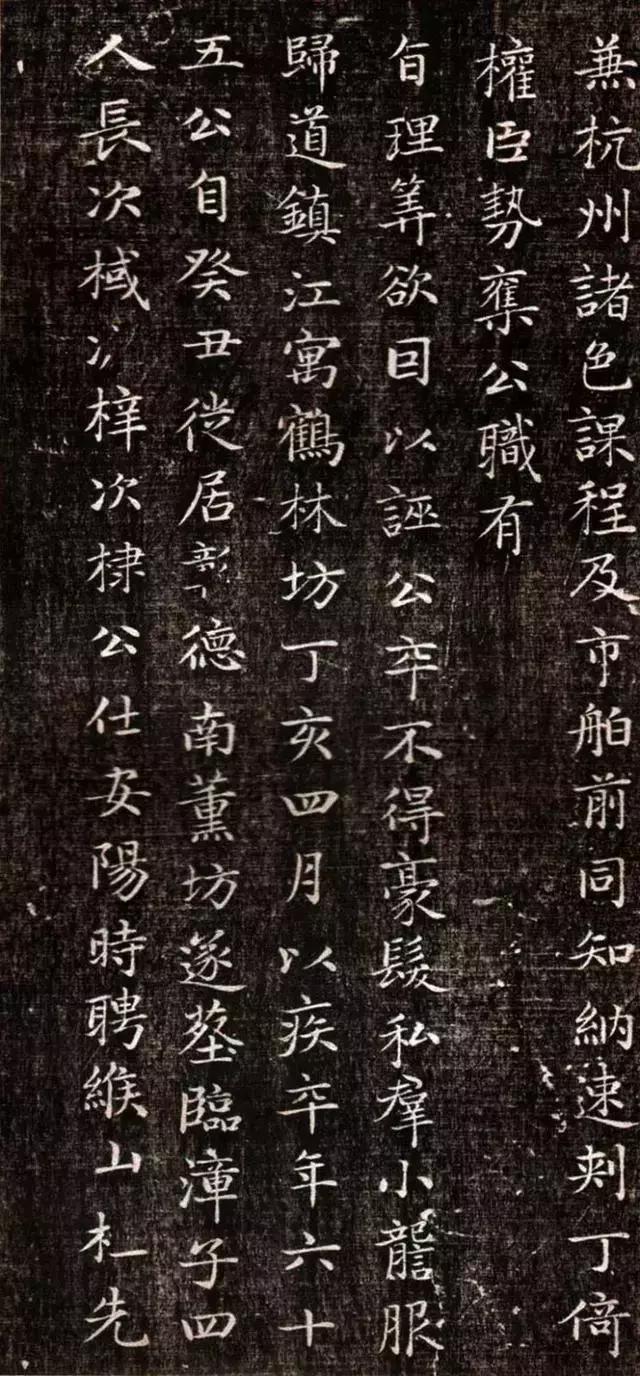 兼杭州諸色課程及市舶前同知納速刺丁倚
權臣勢奪公職有
旨理筭欲因以誣公卒不得豪髮私羣小讋服
歸道鎮江寓鶴林坊丁亥四月以疾卒年六十
五公自癸丑徙居彰德南薰坊遂塟臨漳子四
人長次棫次梓次棣公仕安陽時聘緱山杜先